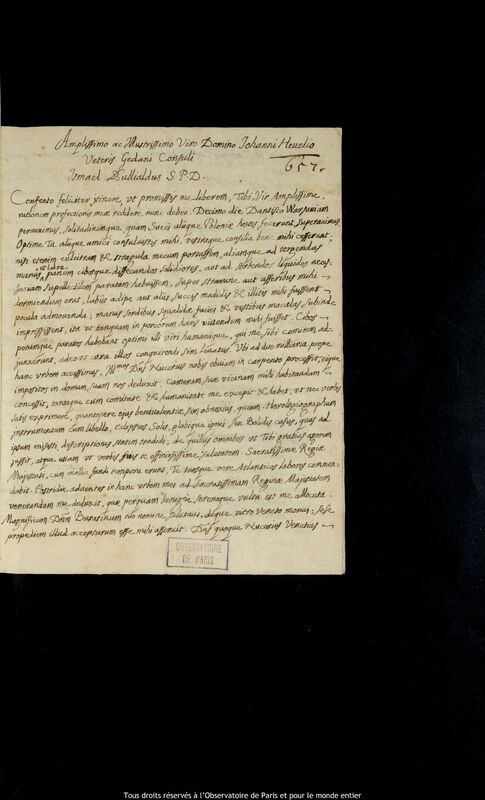 Amplissimo ac Illustrissimo Viro Domino Johanni Hevelio
Veteris Gedani Consuli
657.
Ismael Bullialdus S.P.D.
Confecto feliciter itinere, ut promissis me liberem, Tibi, Vir Amplissime,
rationem profectionis meæ reddere nunc debeo. Decimo die Dantisco Warsaviam
pervenimus, solitudinemque, quam Sueci aliique Poloniæ hostes fecerunt superavimus.
Optime Tu aliique amici consuluistis mihi, vestraque consilia bene mihi cesserunt;
nisi etenim culcitram & stragula mecum portassem, aliamque ad tergendas
manus, et labra, panem cibosque dissecandos solidiores, aut ad sorbendos liquidos neces-
sariam supellectilem paratam habuissem, super stramine aut asseribus mihi
dormiendum erat, labiis adipe aut aliis succis madidis & illitis mihi fuissent
pocula admovenda; manus sordibus squalidæ faciei & vestibus maculas subinde
impressissent, ita ut tanquam in porcorum hara vivendum mihi fuisset. Cibos
potumque paratos habebant optimi illi viri humanique, qui me sibi comitem ad-
junxerant, adeo ut cura illos conquirendi sim levatus. Ubi ad duo milliaria prope
hanc urbem accessimus, Illmus Dns Nucerius nobis obviam in carpento processit, eique
impositos in domum suam nos deduxit. Cameram suæ vicinam mihi habitandam
concessit, tantaque cum comitate & humanitate me excepit & habet, ut nec verbis
satis exprimere, quantopere ejus benevolentiæ sim obnoxius, queam. Horologiographum
instrumentum cum libello, Eclipseos Solis, globique ignei seu Bolidis casus, quas ad
ipsum misisti, descriptiones statim tradidi; de quibus omnibus ut Tibi gratias agerem
jussit, atque etiam ut verbis suis te officiosissime salutarem. Sacratissimæ Reginæ
Majestati, cum mollia fandi tempora erunt, Te tuosque vere Atlanticos labores commen-
dabit. Postridie adventus in hanc urbem mei ad Sacratissimam Reginæ Majestatem
venerandam me deduxit, quæ perquam benigne, serenoque vultu est me allocuta.
Magnificum Dnm Buratinum tuo nomine salutavi, deque vitro Veneto monui; sese
propediem illud accepturum esse mihi asseruit. Dns quoque Nucerius Venetias
OBSERVATOIRE
DE PARIS
Tous droits réservés à l'Observatoire de Paris et pour le monde entier